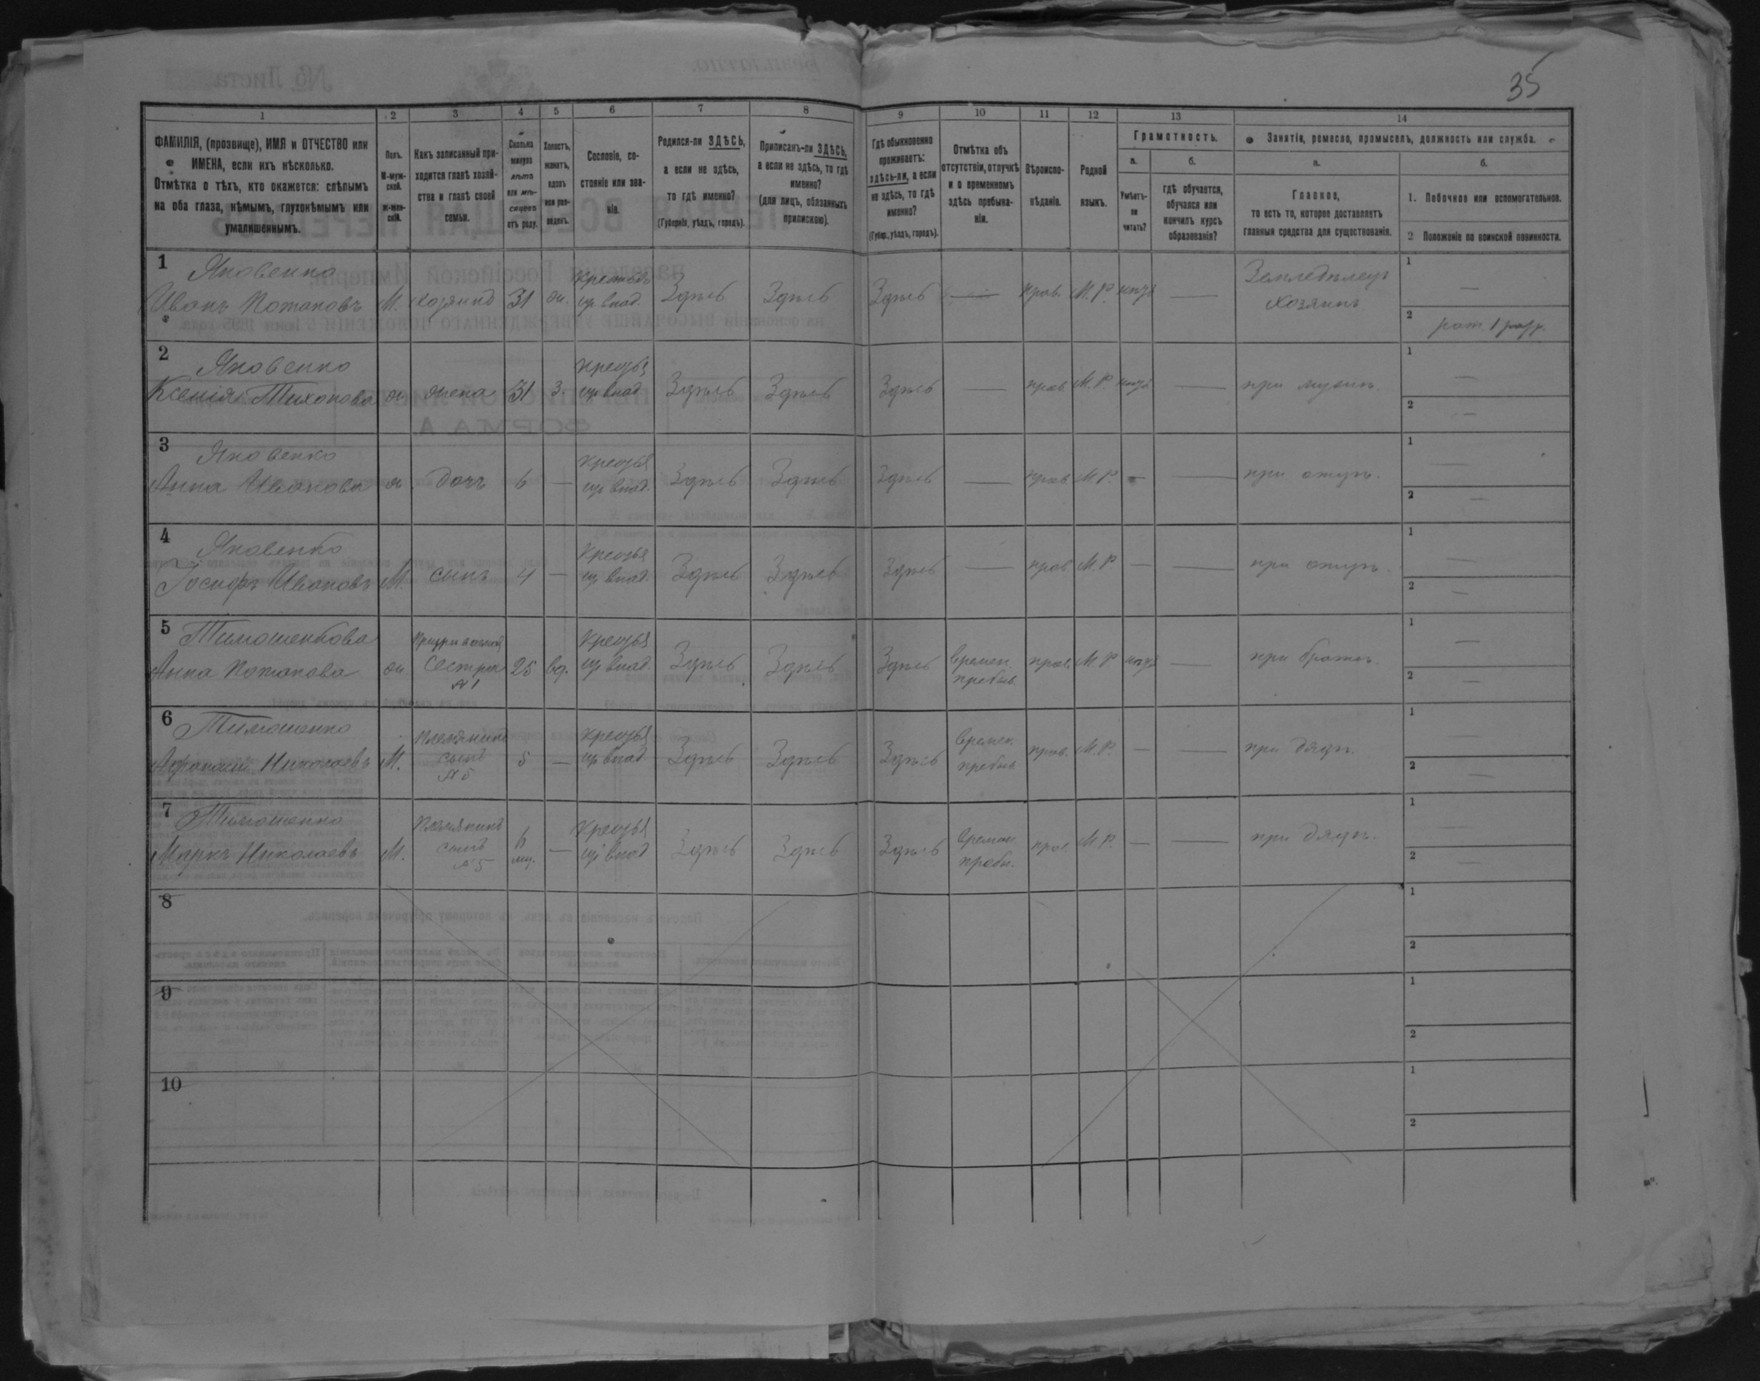 35
1 2 3 4 5 6 7 8 9 10 11 12 13 14
ФАМИЛІЯ, (прозвище), ИМЯ и ОТЧЕСТВО или
ИМЕНА, если ихъ нѣсколько.
Отмѣтка о тѣхъ, кто окажется: слѣпымъ
на оба глаза, нѣмымъ, глухонѣмымъ или
умалишеннымъ.
Полъ.
М-муж-
ской.
ж-жен-
скій.
Какъ записанный при-
ходится главѣ хозяй-
ства и главѣ своей
семьи.
Сколько
минуло
лѣтъ
или мѣ-
сяцевъ
отъ роду.
Холостъ,
женатъ,
вдовъ
или раз-
веденъ.
Сословіе, со-
стояніе или зва-
ніе.
Родился-ли ЗДѢСЬ,
а если не здѣсь,
то гдѣ именно?
(Губернія, уѣздъ, городъ).
Приписанъ-ли ЗДѢСЬ,
а если не здѣсь, то гдѣ
именно?
(для лицъ, обязанныхъ
припискою).
Гдѣ обыкновенно
проживаетъ:
здѣсь-ли, а если
не здѣсь, то гдѣ
именно?
(Губер., уѣздъ, городъ).
Отмѣтка объ
отсутствіи, отлучкѣ
и о временномъ
здѣсь пребыва-
ніи.
Вѣроиспо-
вѣданіе.
Родной
языкъ.
Грамотность.
а.
Умѣетъ-
ли
читать?
б.
гдѣ обучается,
обучался или
кончилъ курсъ
образованія?
Занятіе, ремесло, промыселъ, должность или служба.
а.
Главное,
то есть то, которое доставляетъ
главныя средства для существованія.
б.
1. Побочное или вспомогательное.
2 Положеніе по воинской повинности.
1
Яковенко
Иванъ Потаповъ М. хозяинъ 31 ж. Здѣсь Здѣсь Здѣсь — прав. М. Р. — Земледѣлецъ
хозяинъ
1 —
2 рат. 1 разр.
2
Яковенко
Ксенія Тихонова ж жена 31 З. Здѣсь Здѣсь Здѣсь — прав. М. Р. — при мужѣ.
1 —
2 —
3
Яковенко
Анна Иванова ж дочь 6 — Здѣсь Здѣсь Здѣсь — прав. М. Р. — — при отцѣ.
1 —
2 —
4
Яковенко
Іосифъ Ивановъ М. сынъ 4 — Здѣсь Здѣсь Здѣсь — прав. М. Р. — — при отцѣ.
1 —
2 —
5
Тимошенкова
Анна Потапова ж сестра 25 вд. Здѣсь Здѣсь Здѣсь времен.
№1 пребыв. прав. М. Р. — при братѣ.
1 —
2 —
6
Тимошенко
Афанасій Николаевъ М. племянникъ
сынъ 5 — Здѣсь Здѣсь Здѣсь времен.
№5 пребыв. прав. М. Р. — — при дядѣ.
1 —
2 —
7
Тимошенко
Маркъ Николаевъ М. племянникъ
сынъ 6 мц. — Здѣсь Здѣсь Здѣсь времен.
№5 пребы. прав. М. Р. — — при дядѣ.
1 —
2 —
8
1
2
9
1
2
10
1
2